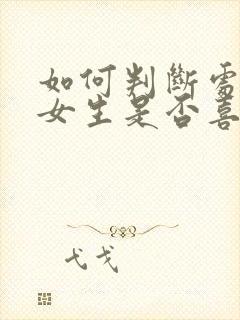 如何判断需
女生是否喜
弋戈